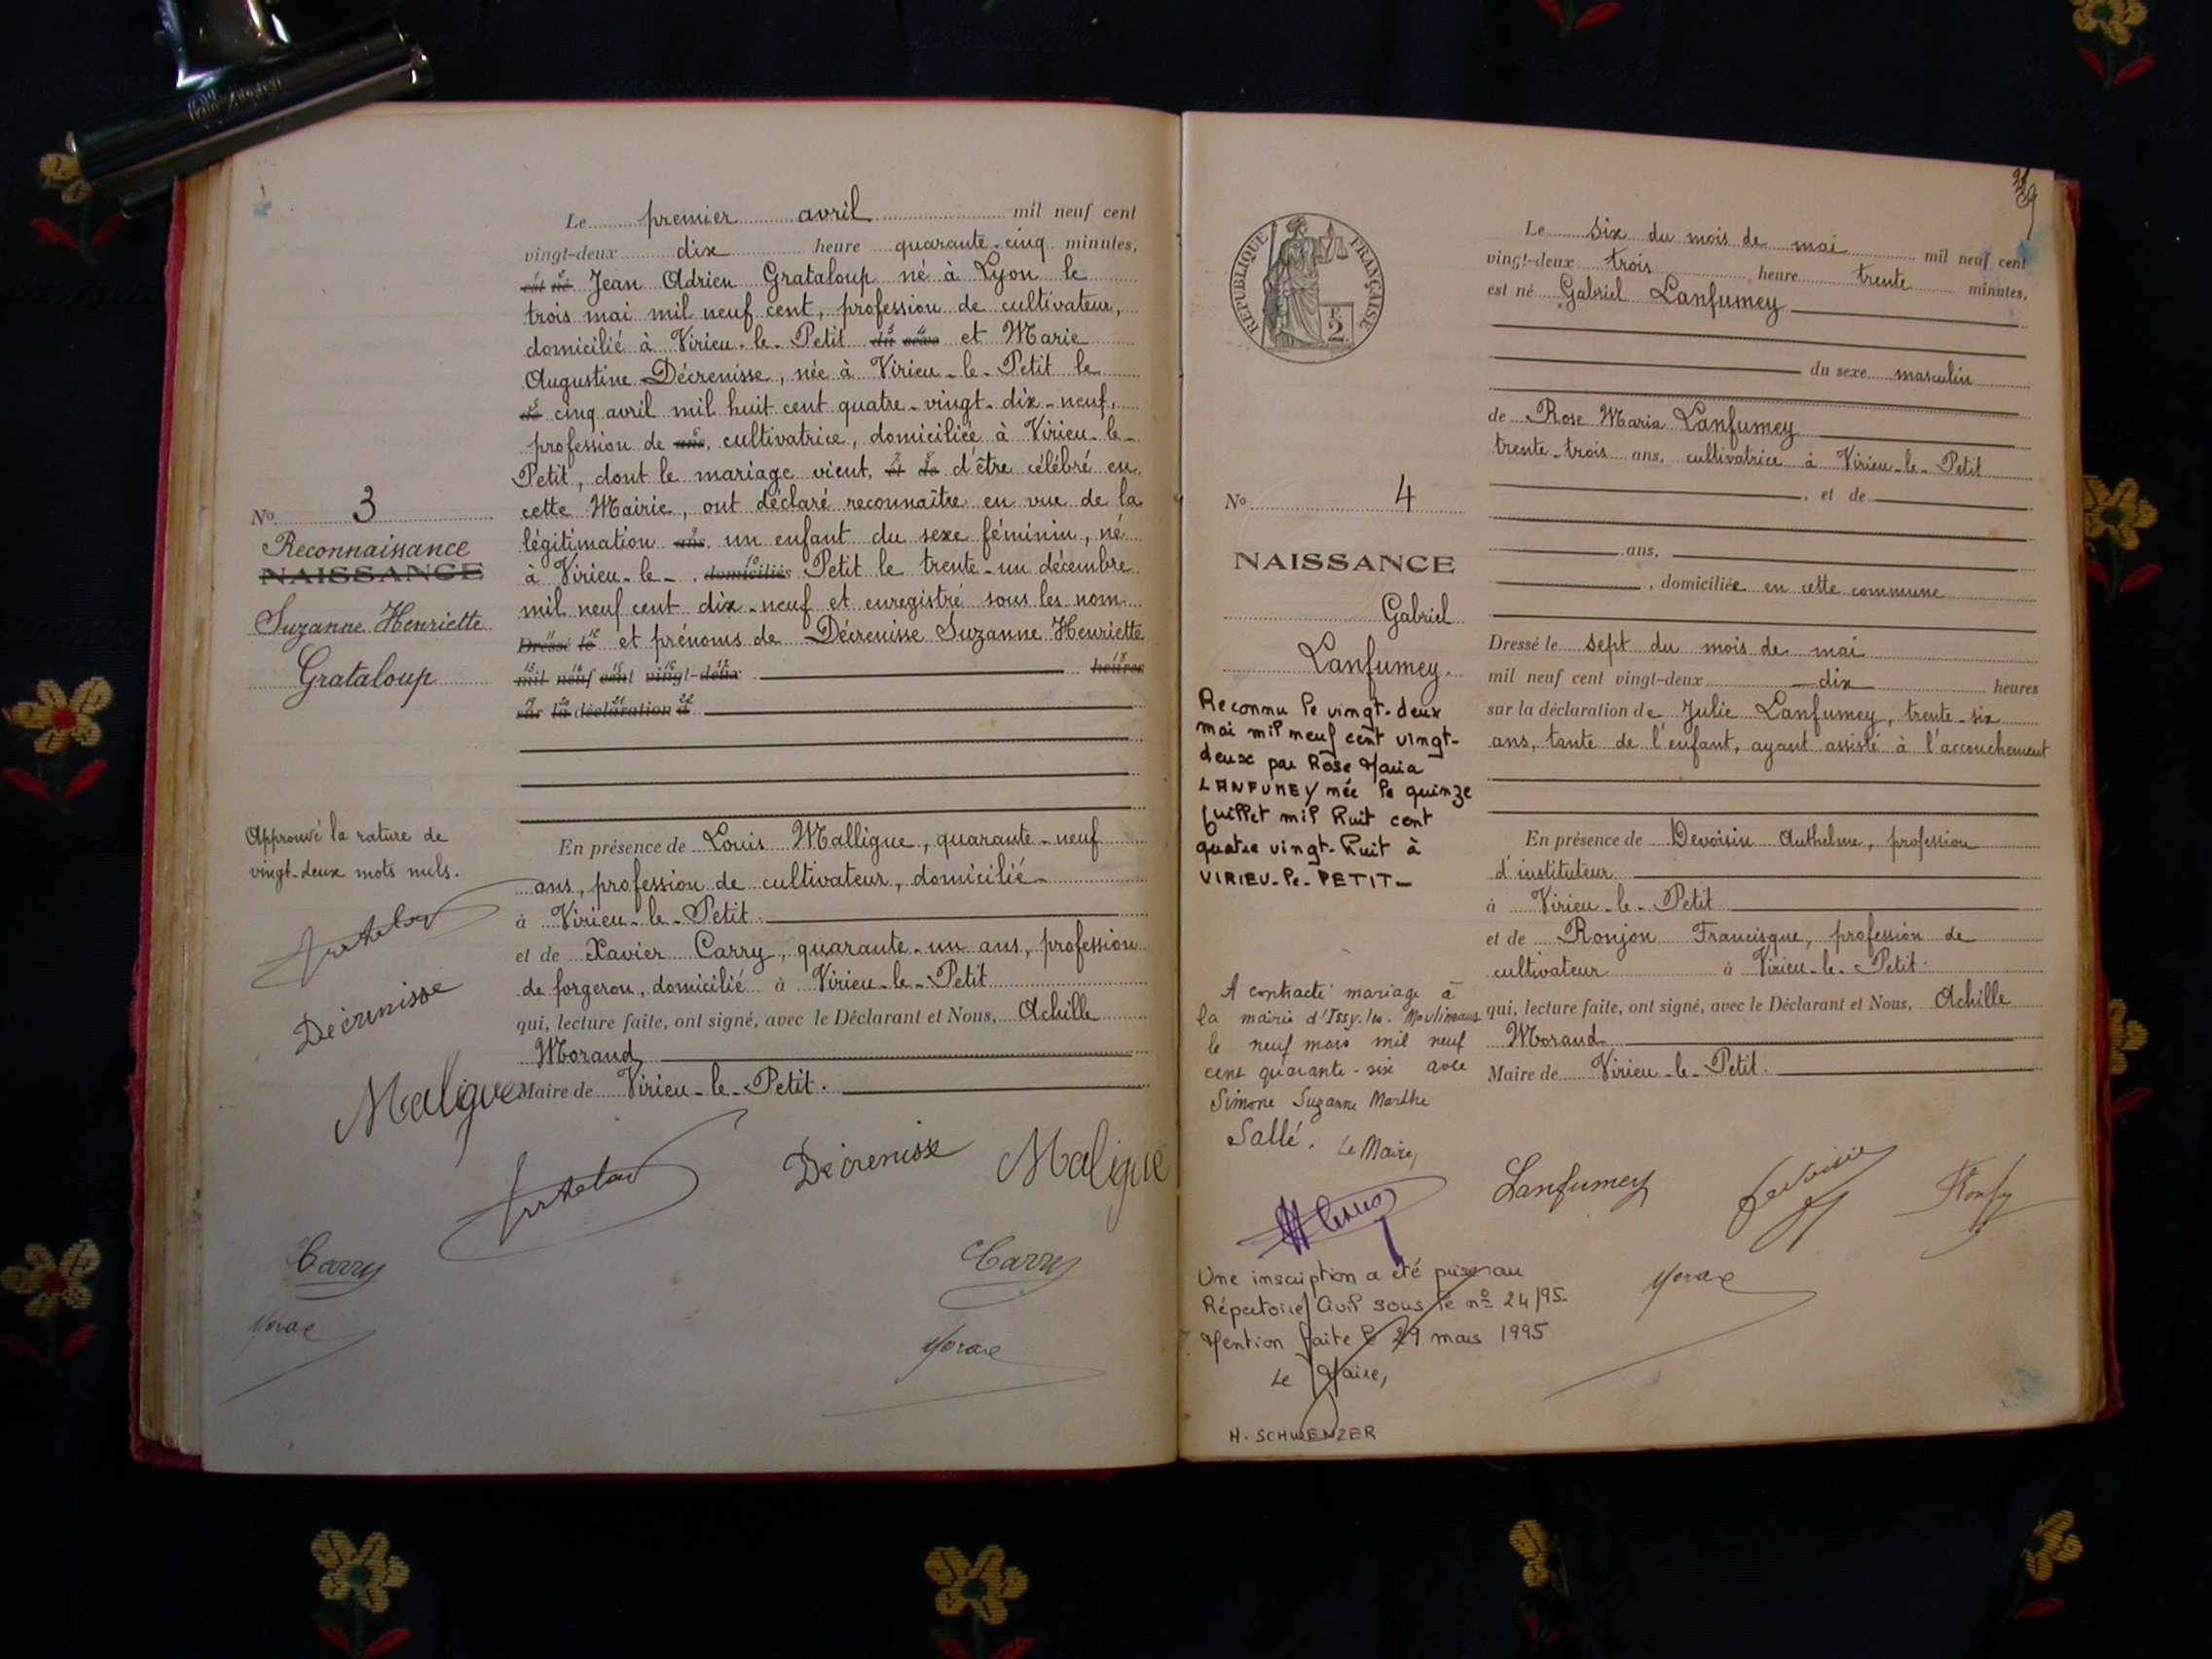 Le premier avril mil neuf cent
vingt-deux dix heure quarante-cinq minutes,
est né Jean Adrien Grataloup né à Lyon le
trois mai mil neuf cent, profession de cultivateur,
domicilié à Virieu-le-Petit du sexe et Marie
Augustine Décrenisse, née à Virieu-le-Petit le
de cinq avril mil huit cent quatre-vingt-dix-neuf,
profession de ans, cultivatrice, domiciliée à Virieu-le-
Petit, dont le mariage vient, et de d'être célébré en
cette Mairie, ont déclaré reconnaître en vue de la
légitimation ans, un enfant du sexe féminin, né
à Virieu-le- domiciliés Petit le trente-un décembre
mil neuf cent dix-neuf et enregistré sous les nom
Dressé le et prénoms de Décrenisse Suzanne Henriette
mil neuf cent vingt-deux heures
sur la déclaration d
En présence de Louis Malligue, quarante-neuf
ans, profession de cultivateur, domicilié
à Virieu-le-Petit
et de Xavier Carry, quarante-un ans, profession
de forgeron, domicilié à Virieu-le-Petit
qui, lecture faite, ont signé, avec le Déclarant et Nous, Achille
Morand
Maire de Virieu-le-Petit.
No 3
Reconnaissance
NAISSANCE
Suzanne Henriette
Grataloup
Approuvé la rature de
vingt-deux mots nuls.
Décrenisse
Maligue
Décrenisse Maligue
Carry Carry
RÉPUBLIQUE FRANÇAISE
F.
2.
No 4
NAISSANCE
Gabriel
Lanfumey.
Reconnu le vingt-deux
mai mil neuf cent vingt-
deux par Rose Maria
LANFUMEY née le quinze
juillet mil huit cent
quatre vingt-huit à
VIRIEU-le-PETIT-
A contracté mariage à
la mairie d'Issy-les-Moulineaux
le neuf mars mil neuf
cent quarante-six avec
Simone Suzanne Marthe
Sallé. Le Maire,
Une inscription a été prise au
Répertoire Civil sous le no 24/95.
Mention faite le 29 mars 1995
Le Maire,
H. SCHWENZER
Le six du mois de mai mil neuf cent
vingt-deux trois heure trente minutes,
est né Gabriel Lanfumey
du sexe masculin
de Rose Maria Lanfumey
trente-trois ans, cultivatrice à Virieu-le-Petit
, et de
ans,
, domiciliée en cette commune
Dressé le sept du mois de mai
mil neuf cent vingt-deux dix heures
sur la déclaration de Julie Lanfumey, trente-six
ans, tante de l'enfant, ayant assisté à l'accouchement
En présence de Devoisin Anthelme, profession
d'instituteur
à Virieu-le-Petit
et de Ronjon Francisque, profession de
cultivateur à Virieu-le-Petit.
qui, lecture faite, ont signé, avec le Déclarant et Nous, Achille
Morand
Maire de Virieu-le-Petit.
Lanfumey